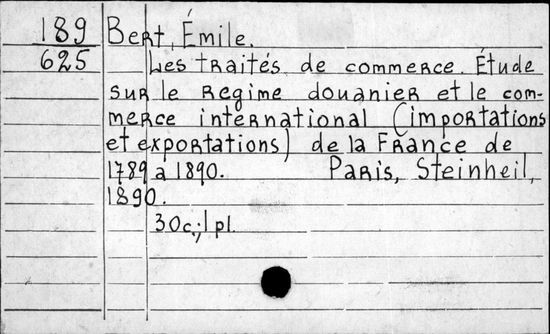 189 Bert, Émile.
625 Les traités de commerce. Étude
sur le regime douanier et le com-
merce international (importations
et exportations) de la France de
1789 a 1890. Paris, Steinheil,
1890.
30c.; 1 pl.